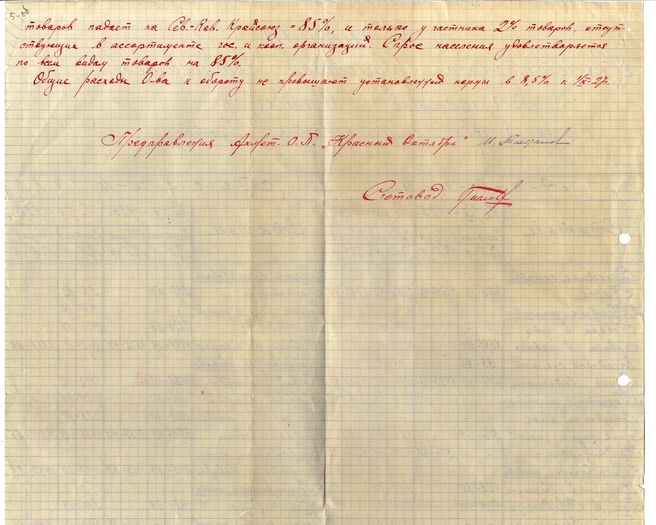 товаров падает на Сев.-Кав. Крайсоюз = 85%, и только у частника 2% товаров, отсут-
ствующих в ассортименте гос. и кооп. организаций. Спрос населения удовлетворяется
по всем видам товаров на 85%.
Общие расходы О-ва к обороту не превышают установленной нормы в 8,5% к 1/X-27г.
Предправления О.П. „Красный Октябрь"
Счетовод